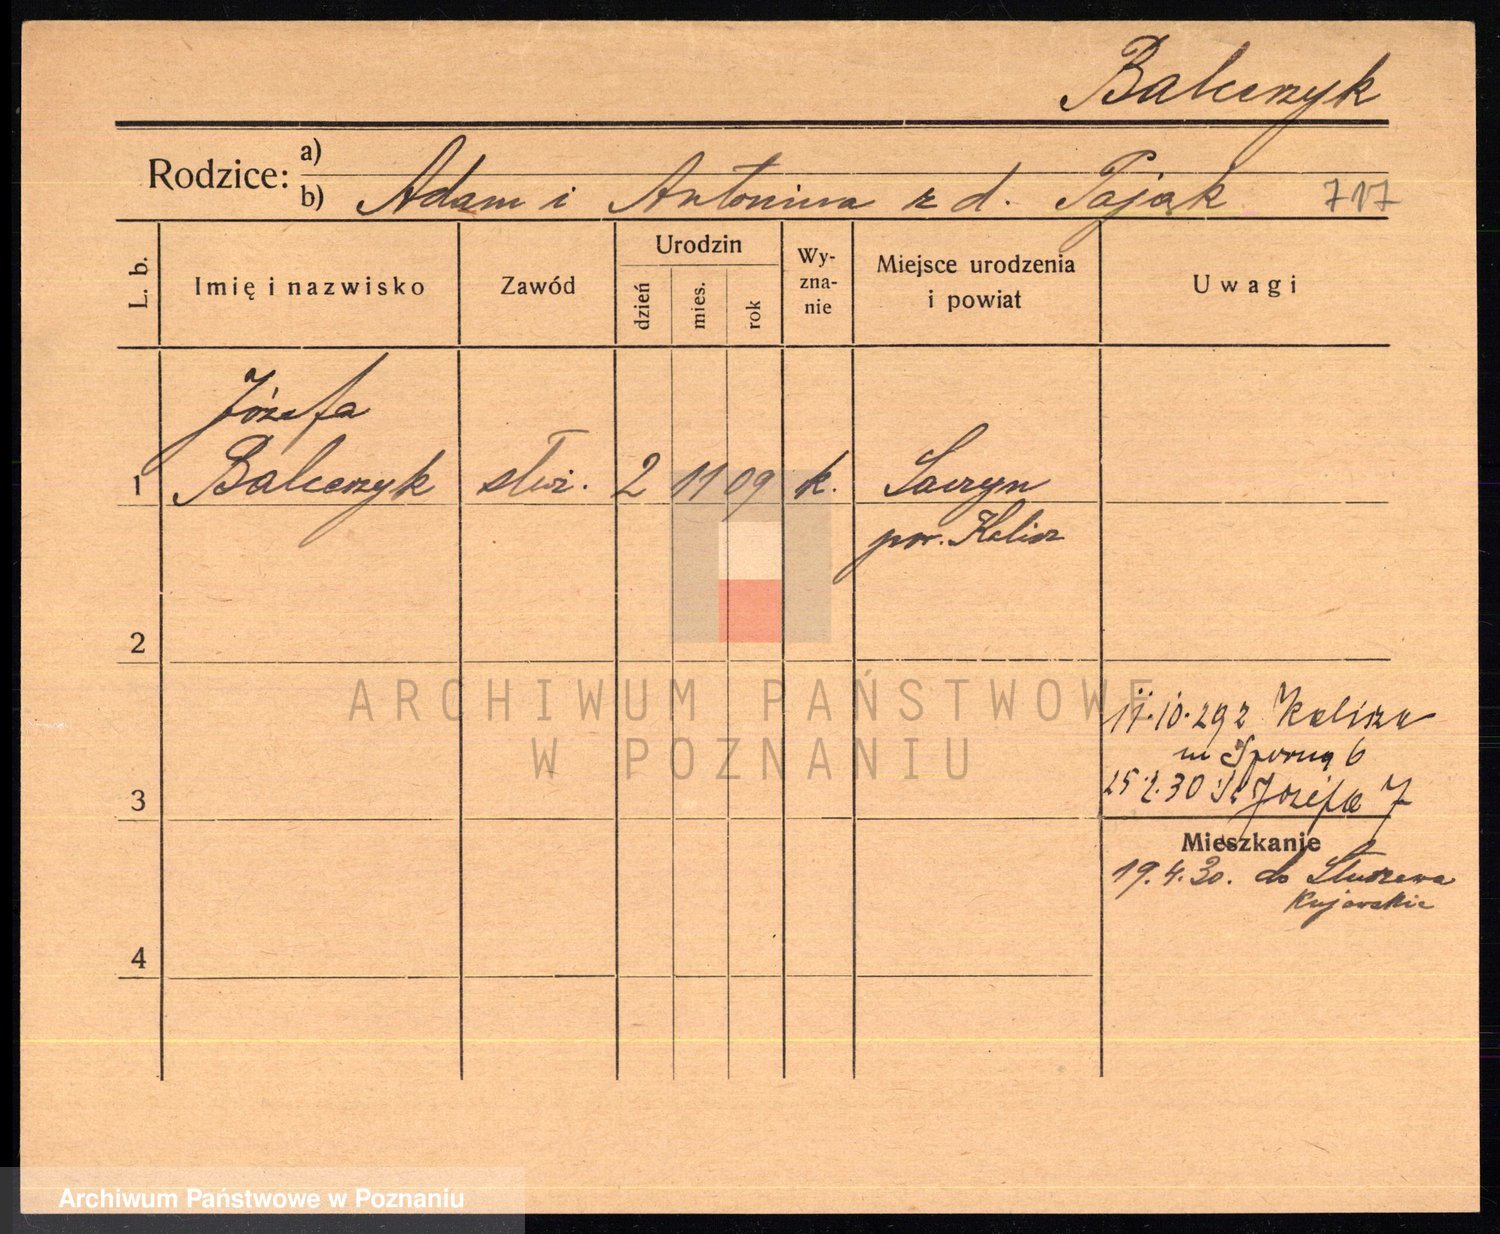 Balcerzyk
Rodzice: a)
b) Adam i Antonina z d. Pająk 717
L. b.
Imię i nazwisko
Zawód
Urodzin
dzień
mies.
rok
Wy-
zna-
nie
Miejsce urodzenia
i powiat
Uwagi
Józefa
1 Balcerzyk służ. 2 11 09 k.
pow. Kalisz
2
ARCHIWUM PAŃSTWOWE
W POZNANIU
11.10.29 z Kalisza
m Sporną 6
3
25.2.30 Św Józefa 7
Mieszkanie
19.4.30. do Słuszewa
Kujawskie
4
Archiwum Państwowe w Poznaniu